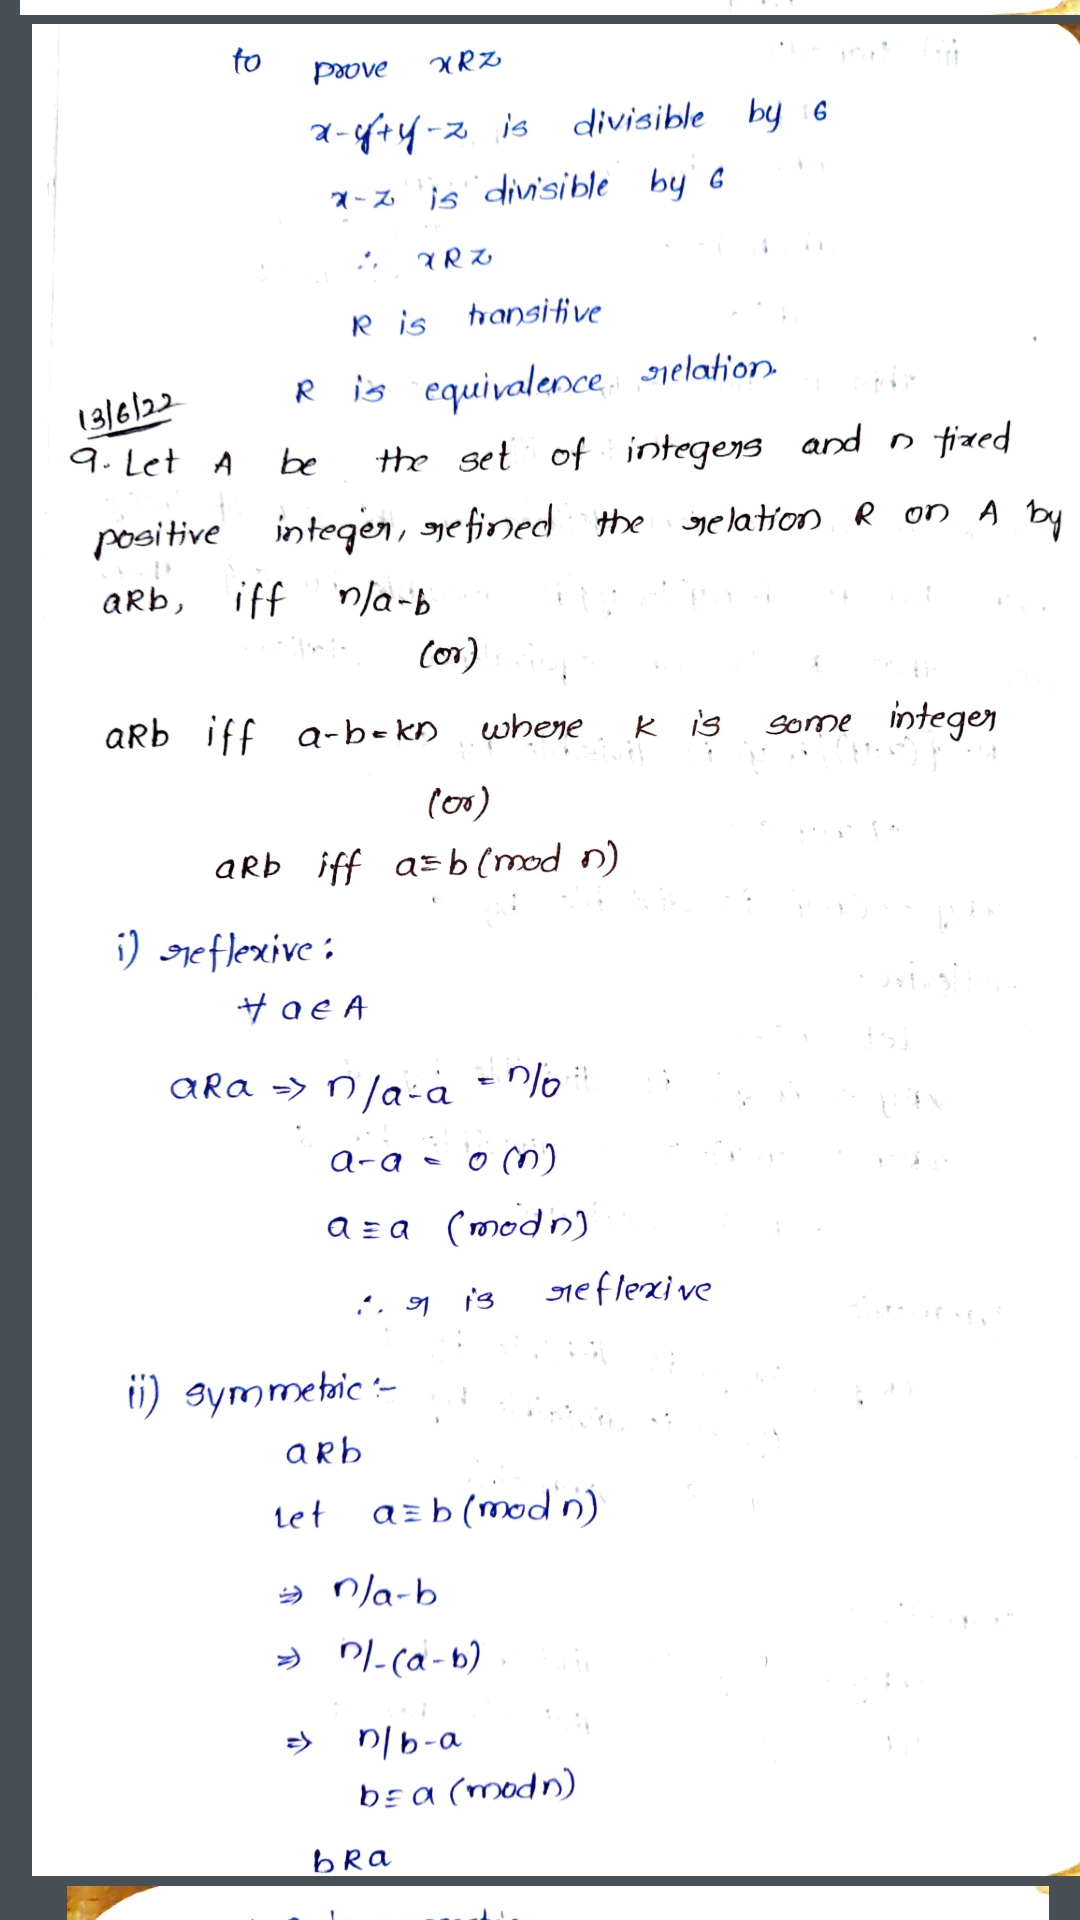 to prove xRz
x-y+y-z is divisible by 6
x-z is divisible by 6
∴ xRz
R is transitive
R is equivalence relation.
13/6/22
9. Let A be the set of integers and n fixed
positive integer, refined the relation R on A by
aRb, iff n/a-b
(or)
aRb iff a-b=kn where k is some integer
(or)
aRb iff a≡b(mod n)
i) reflexive:
∀ a∈A
aRa ⇒ n/a-a = n/0
a-a = 0(n)
a≡a (modn)
∴ r is reflexive
ii) symmetric:-
aRb
Let a≡b(mod n)
⇒ n/a-b
⇒ n/-(a-b)
⇒ n/b-a
b≡a (modn)
bRa